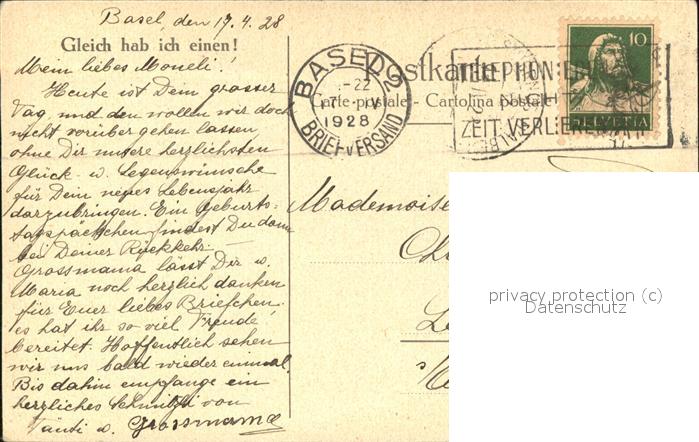 Basel, den 17.4.28
Gleich hab ich einen!
Mein liebes Moneli!
Heute ist Dein grosser
Tag, und den wollen wir doch
nicht vorüber gehen lassen,
ohne Dir unsere herzlichsten
Glück- u. Segenswünsche
für Dein neues Lebensjahr
darzubringen. Ein Geburts-
tagspäckchen findest Du dann
bei Deiner Rückkehr. —
Grossmama lässt Dir u.
Maria noch herzlich danken
für Euer liebes Briefchen,
es hat ihr so viel Freude
bereitet. Hoffentlich sehen
wir uns bald wieder einmal.
Bis dahin empfange ein
herzliches Schmützli von
Tanti u. Grossmama
BASEL 2
-22
1928
BRIEFVERSAND
Postkarte
Carte postale - Cartolina postale
TELEPHONIEREN
ZEIT VERLIEREN
10
HELVETIA
Mademoise
privacy protection (c)
Datenschutz